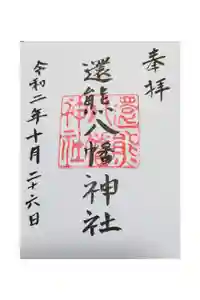 奉拝
還熊八幡神社
還熊
八幡
神社
令和二年十月二十六日